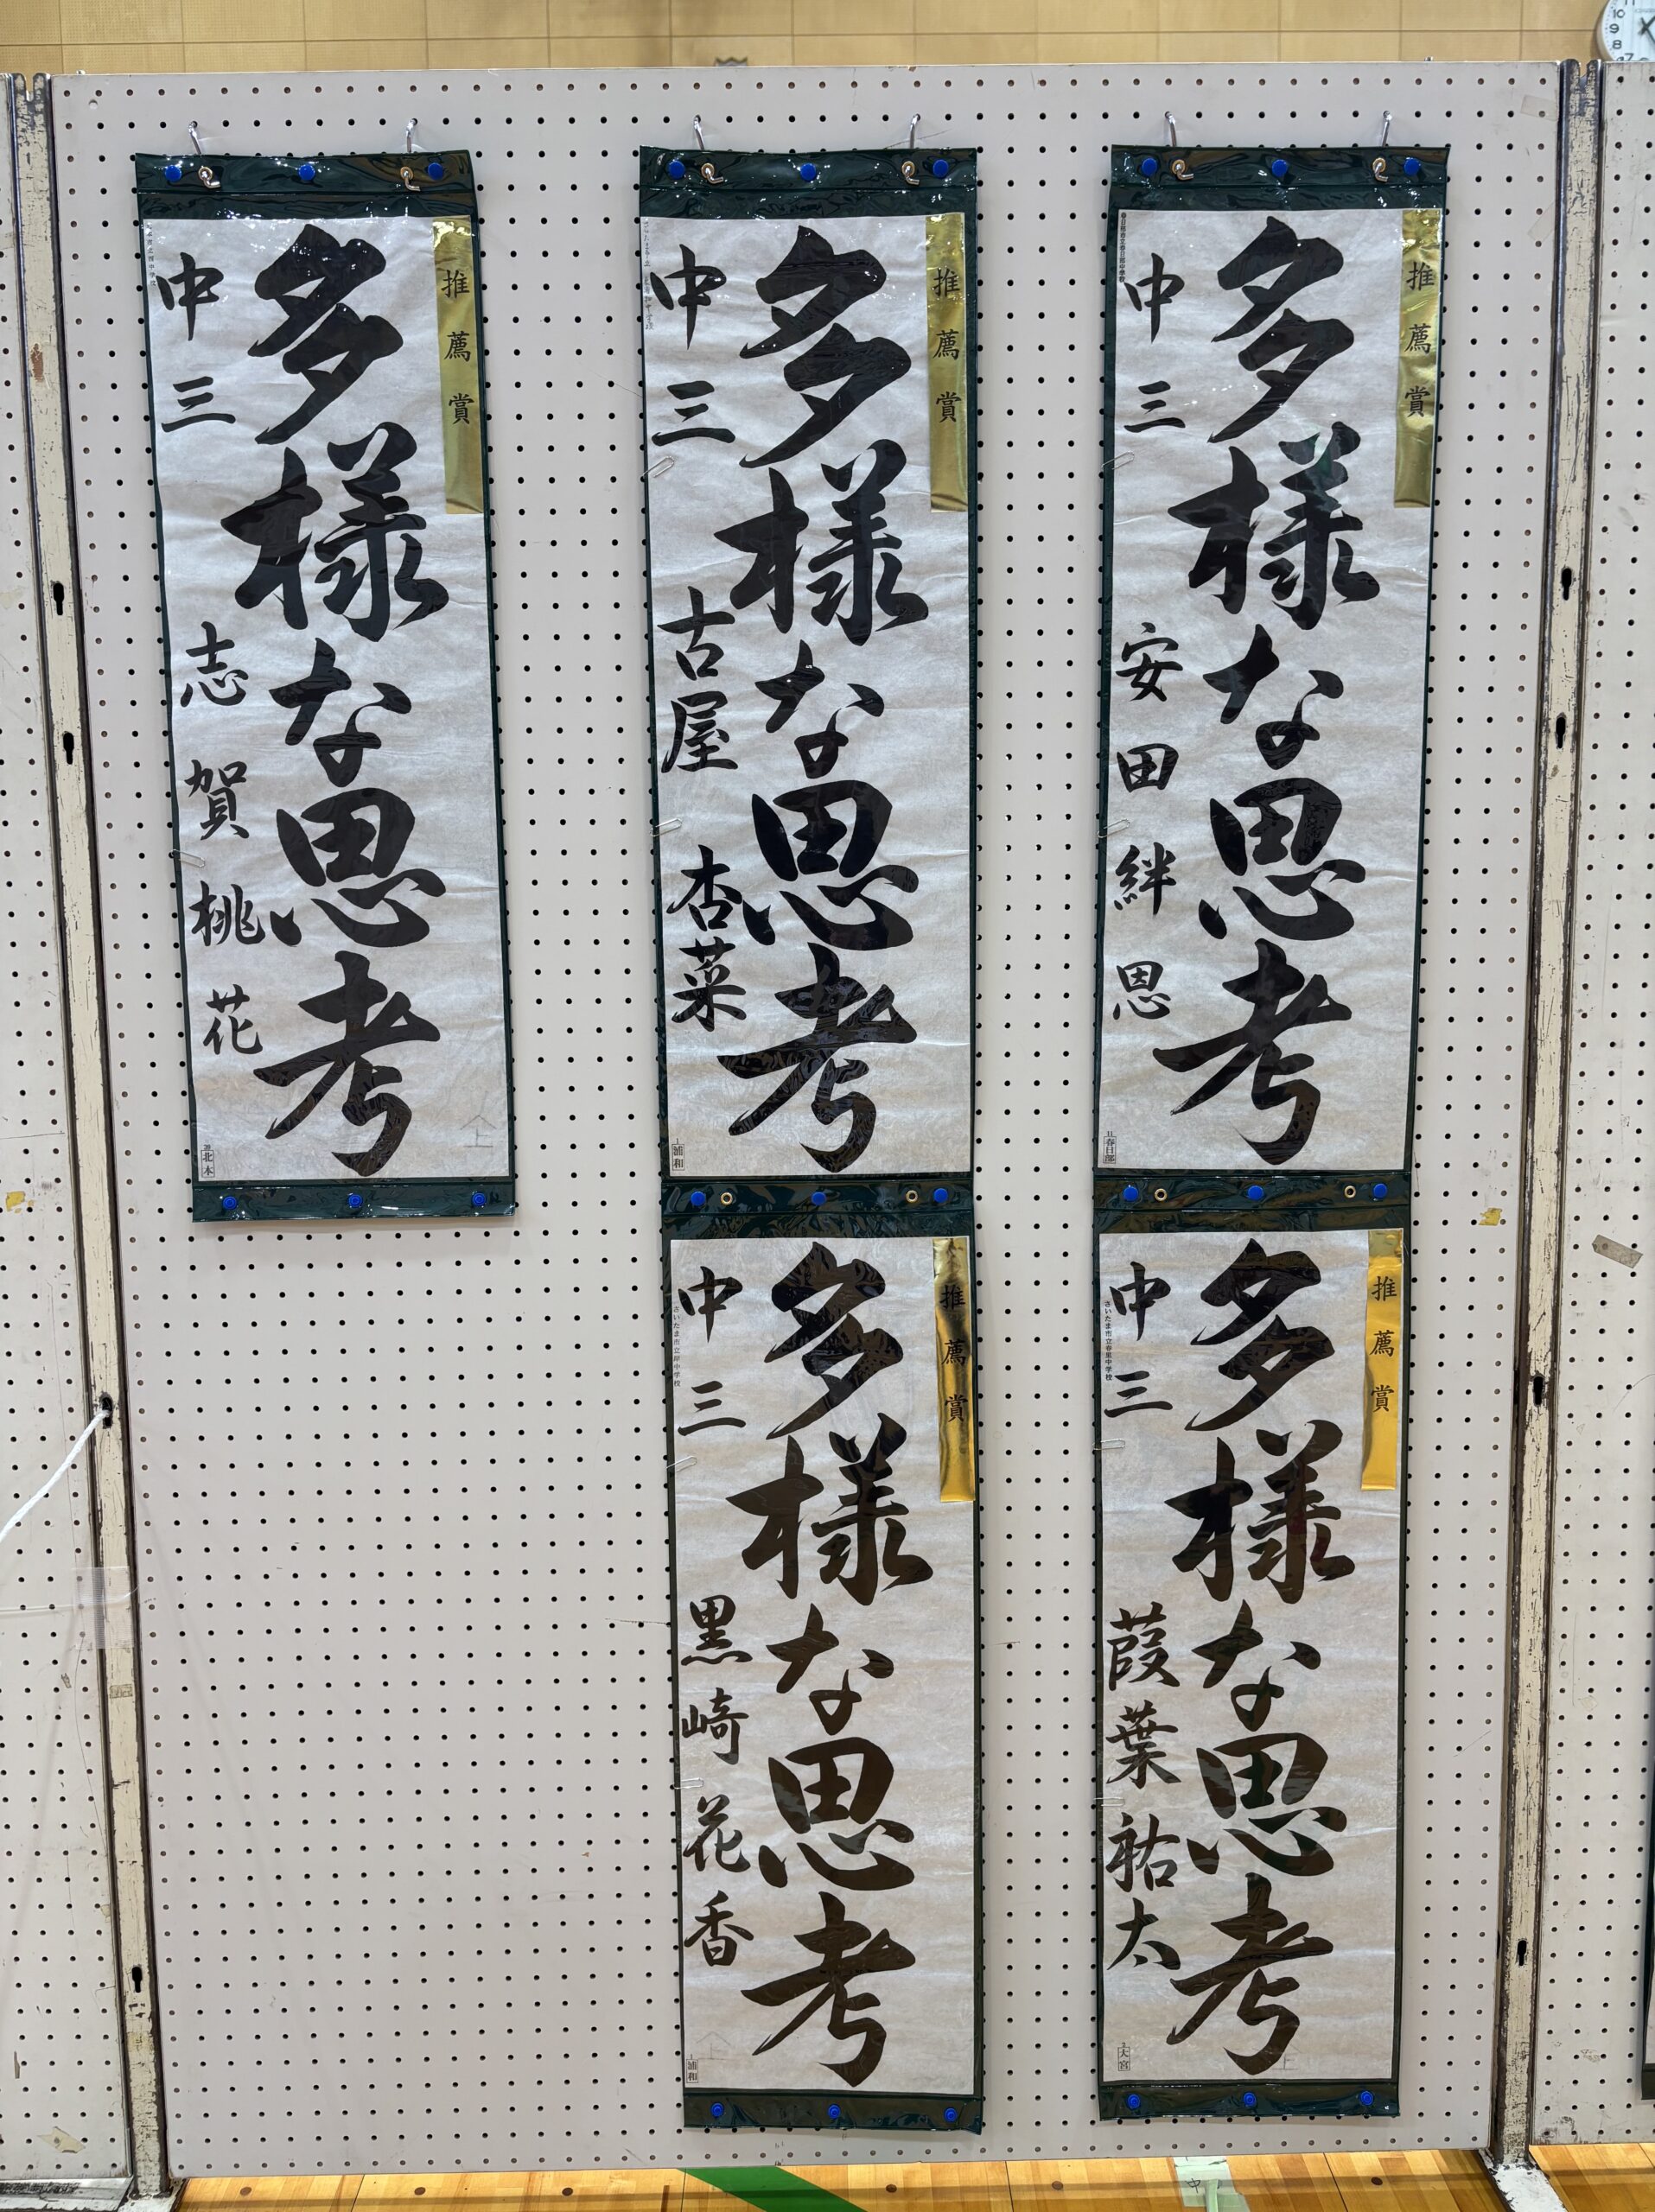 推薦賞
多様な思考
中三 安田絆恩
春日部
推薦賞
多様な思考
中三 葭葉祐太
さいたま市立春里中学校
大宮
推薦賞
多様な思考
中三 古屋杏菜
浦和
推薦賞
多様な思考
中三 黒崎花香
さいたま市立岸中学校
浦和
推薦賞
多様な思考
中三 志賀桃花
北本